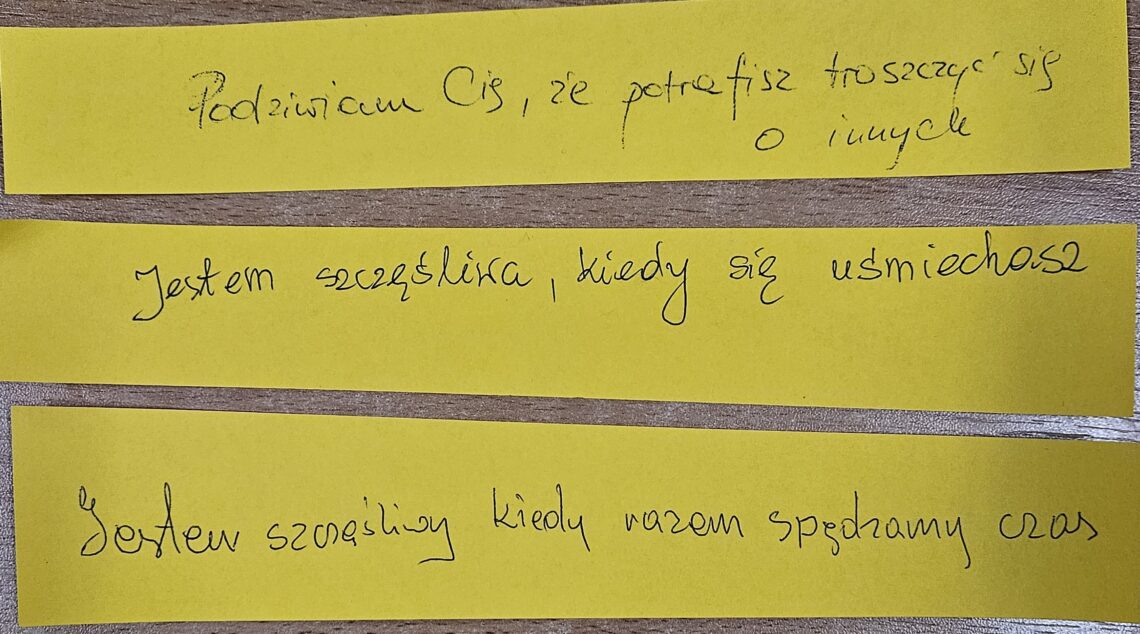 Podziwiam Cię, że potrafisz troszczyć się
o innych
Jestem szczęśliwa, kiedy się uśmiechasz
Jestem szczęśliwy kiedy razem spędzamy czas